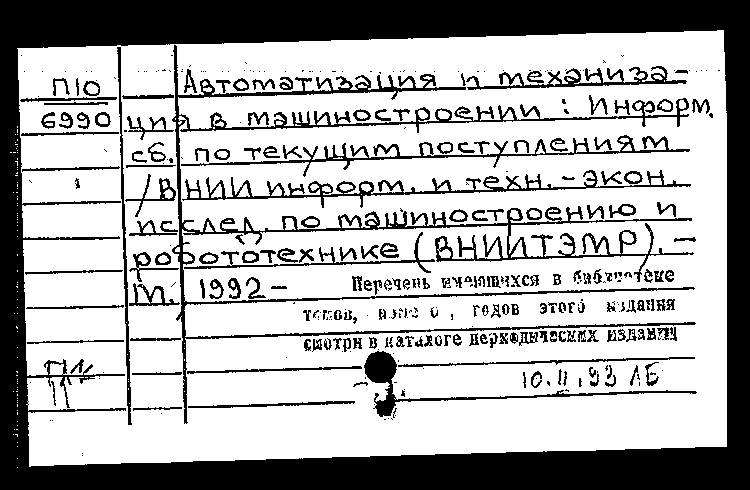 П10
6990
Автоматизация и механиза-
ция в машиностроении : Информ.
сб. по текущим поступлениям
/ВНИИ информ. и техн.-экон.
исслед. по машиностроению и
робототехнике (ВНИИТЭМР). —
М., 1992 -
Перечень имеющихся в библиотеке
томов, , годов этого издания
смотри в каталоге периодических изданий
10.II.93 ЛБ